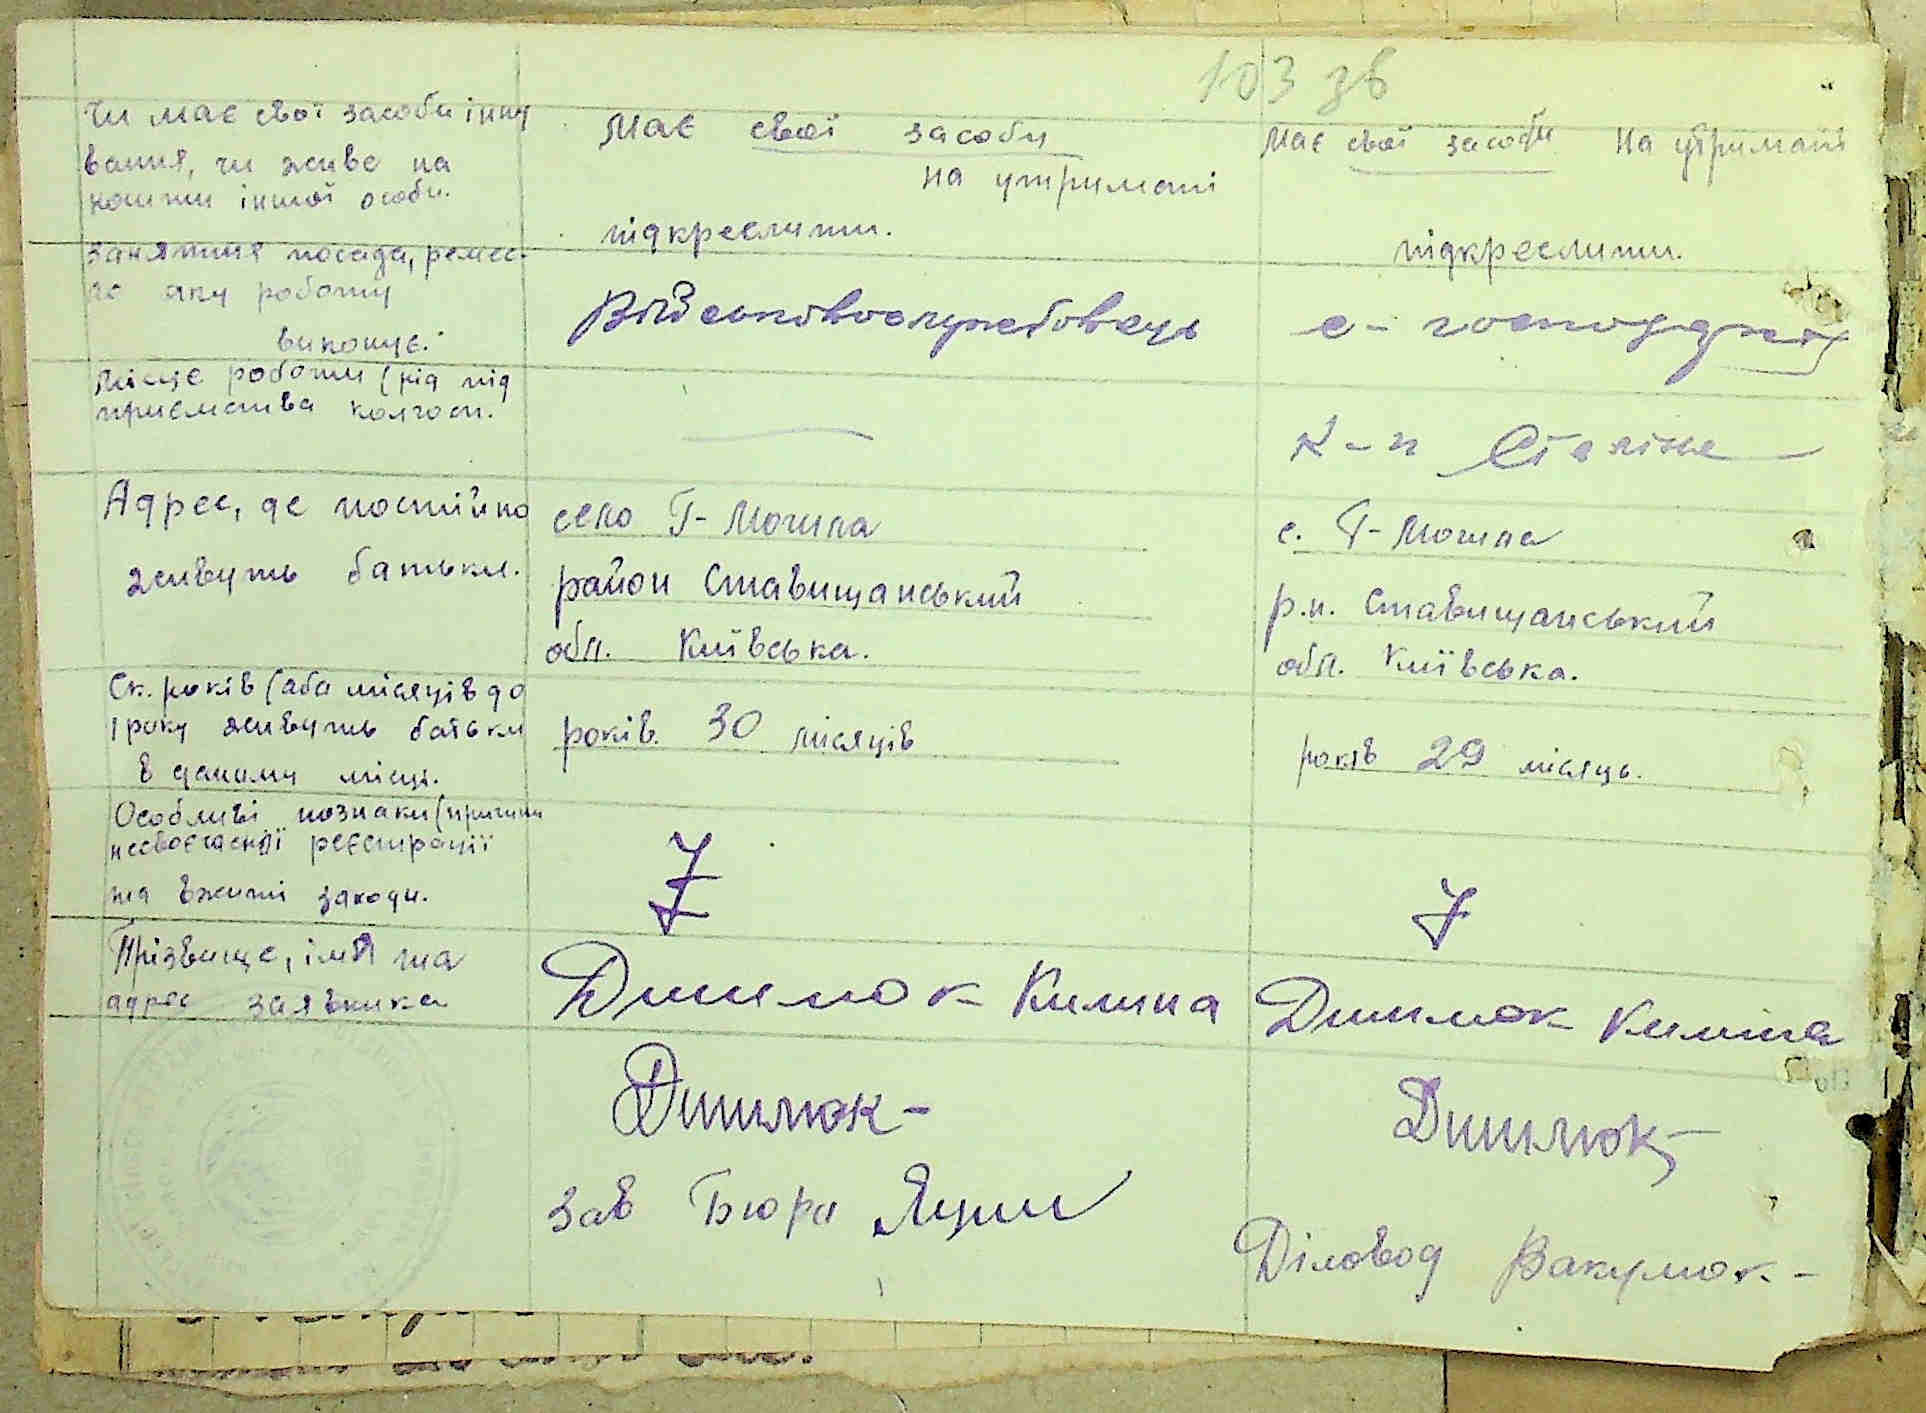 103 зв
Чи має свої засоби існу
вання, чи живе на
кошти іншої особи.
Має свої засоби
на утримані
підкреслити.
Має свої засоби на утримані
підкреслити.
Заняття посада, ремес-
ло яку роботу
виконує.
Військовослужбовець
с-господар
Місце роботи (від під
приємства колгосп.
к-п Сталіна
Адрес, де постійно
живуть батьки.
село Г-Могила
район Ставищанський
обл. Київська.
с. Г-Могила
р.н. Ставищанський
обл. Київська.
Ск. років (або місяців до
1 року живуть батьки
в даному місці.
років 30 місяців
років 29 місяць.
Особливі познаки (причини
несвоєчасної реєстрації
та вжиті заходи.
Прізвище, імя та
адрес заявника
Дишлюк Килина
Дишлюк Килина
Дишлюк-
Дишлюк-
зав Бюра
Діловод Вакулюк-